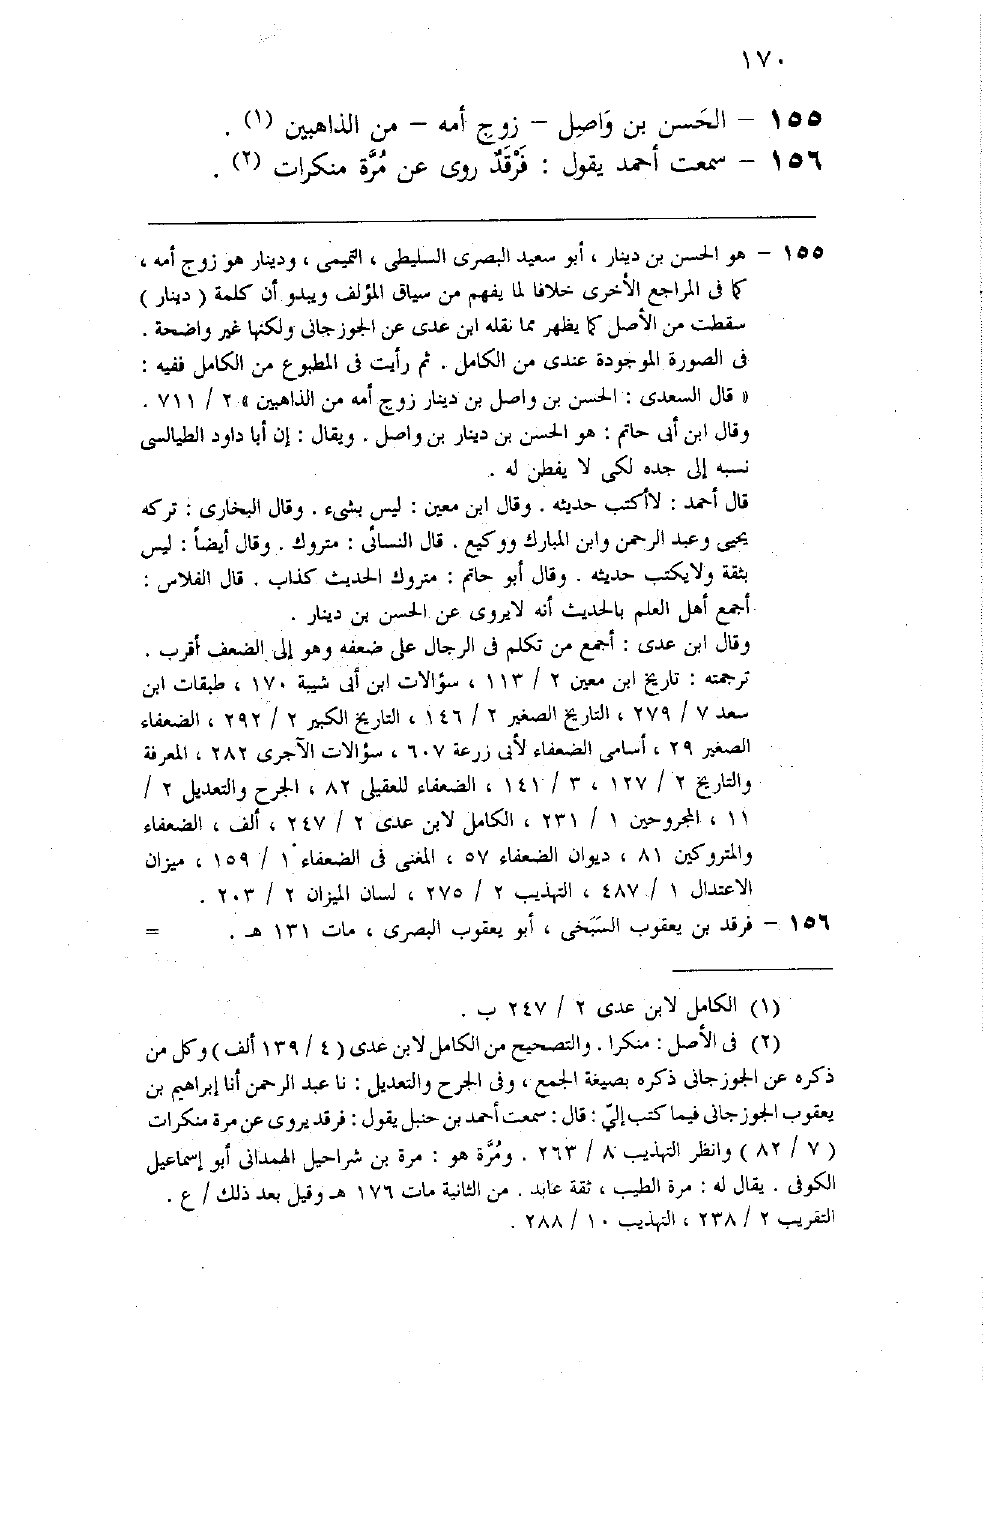 ١٧٠
١٥٥ – الحَسن بن وَاصِل – زوج أمه – من الذاهبين (١) .
١٥٦ – سمعت أحمد يقول : فَرْقَدٌ روى عن مُرَّة منكرات (٢) .
١٥٥ – هو الحسن بن دينار ، أبو سعيد البصرى السليطى ، التميمى ، ودينار هو زوج أمه ،
كما فى المراجع الأخرى خلافا لما يفهم من سياق المؤلف ويبدو أن كلمة ( دينار )
سقطت من الأصل كما يظهر مما نقله ابن عدى عن الجوزجانى ولكنها غير واضحة .
فى الصورة الموجودة عندى من الكامل . ثم رأيت فى المطبوع من الكامل ففيه :
« قال السعدى : الحسن بن واصل بن دينار زوج أمه من الذاهبين » ٢ / ٧١١ .
وقال ابن أبى حاتم : هو الحسن بن دينار بن واصل . ويقال : إن أبا داود الطيالسى
نسبه إلى جده لكى لا يفطن له .
قال أحمد : لاأكتب حديثه . وقال ابن معين : ليس بشىء . وقال البخارى : تركه
يحيى وعبد الرحمن وابن المبارك ووكيع . قال النسائى : متروك . وقال أيضاً : ليس
بثقة ولايكتب حديثه . وقال أبو حاتم : متروك الحديث كذاب . قال الفلاس :
أجمع أهل العلم بالحديث أنه لايروى عن الحسن بن دينار .
وقال ابن عدى : أجمع من تكلم فى الرجال على ضعفه وهو إلى الضعف أقرب .
ترجمته : تاريخ ابن معين ٢ / ١١٣ ، سؤالات ابن أبى شيبة ١٧٠ ، طبقات ابن
سعد ٧ / ٢٧٩ ، التاريخ الصغير ٢ / ١٤٦ ، التاريخ الكبير ٢ / ٢٩٢ ، الضعفاء
الصغير ٢٩ ، أسامى الضعفاء لأبى زرعة ٦٠٧ ، سؤالات الآجرى ٢٨٢ ، المعرفة
والتاريخ ٢ / ١٢٧ ، ٣ / ١٤١ ، الضعفاء للعقيلى ٨٢ ، الجرح والتعديل ٢ /
١١ ، المجروحين ١ / ٢٣١ ، الكامل لابن عدى ٢ / ٢٤٧ ، ألف ، الضعفاء
والمتروكين ٨١ ، ديوان الضعفاء ٥٧ ، المغنى فى الضعفاء ١ / ١٥٩ ، ميزان
الاعتدال ١ / ٤٨٧ ، التهذيب ٢ / ٢٧٥ ، لسان الميزان ٢ / ٢٠٣ .
١٥٦ – فرقد بن يعقوب السَبَخى ، أبو يعقوب البصرى ، مات ١٣١ هـ . =
(١) الكامل لابن عدى ٢ / ٢٤٧ ب .
(٢) فى الأصل : منكرا . والتصحيح من الكامل لابن عدى ( ٤ / ١٣٩ ألف ) وكل من
ذكره عن الجوزجانى ذكره بصيغة الجمع ، وفى الجرح والتعديل : نا عبد الرحمن أنا إبراهيم بن
يعقوب الجوزجانى فيما كتب إليّ : قال : سمعت أحمد بن حنبل يقول : فرقد يروى عن مرة منكرات
( ٧ / ٨٢ ) وانظر التهذيب ٨ / ٢٦٣ . ومُرَّة هو : مرة بن شراحيل الهمدانى أبو إسماعيل
الكوفى . يقال له : مرة الطيب ، ثقة عابد . من الثانية مات ١٧٦ هـ وقيل بعد ذلك / ع .
التقريب ٢ / ٢٣٨ ، التهذيب ١٠ / ٢٨٨ .